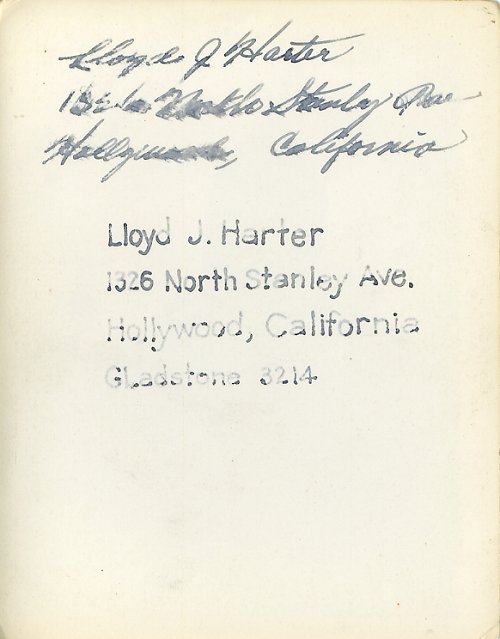 Lloyd J Harter
1326 North Stanley Ave
Hollywood, California
Lloyd J. Harter
1326 North Stanley Ave.
Hollywood, California
GLadstone 3214